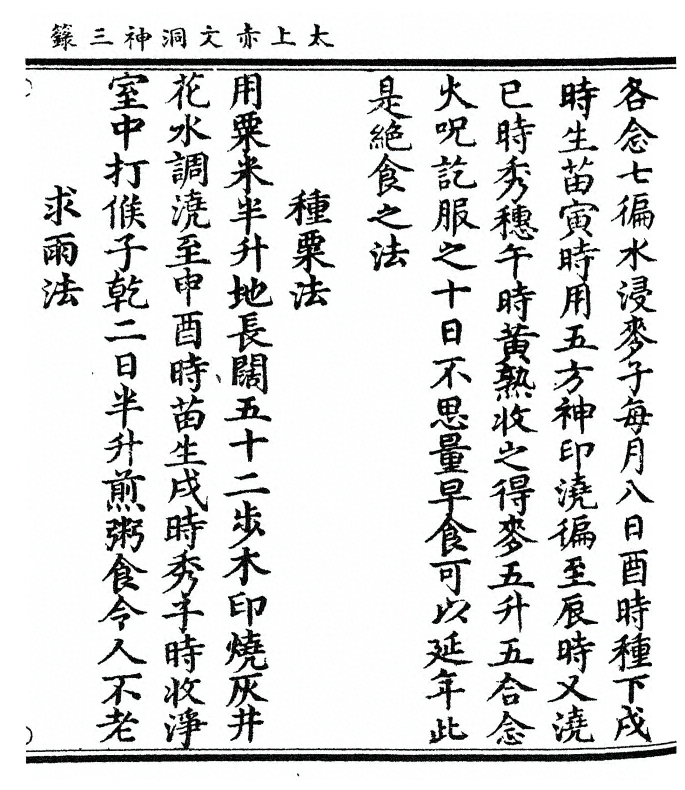 太上赤文洞神三籙
各念七徧水浸麥子每月八日酉時種下戌
時生苗寅時用五方神印澆徧至辰時又澆
巳時秀穗午時黃熟收之得麥五升五合念
火呪訖服之十日不思量早食可以延年此
是絕食之法
種粟法
用粟米半升地長闊五十二步木印燒灰井
花水調澆至申酉時苗生戌時秀子時收淨
室中打候子乾二日半升煎粥食令人不老
求雨法